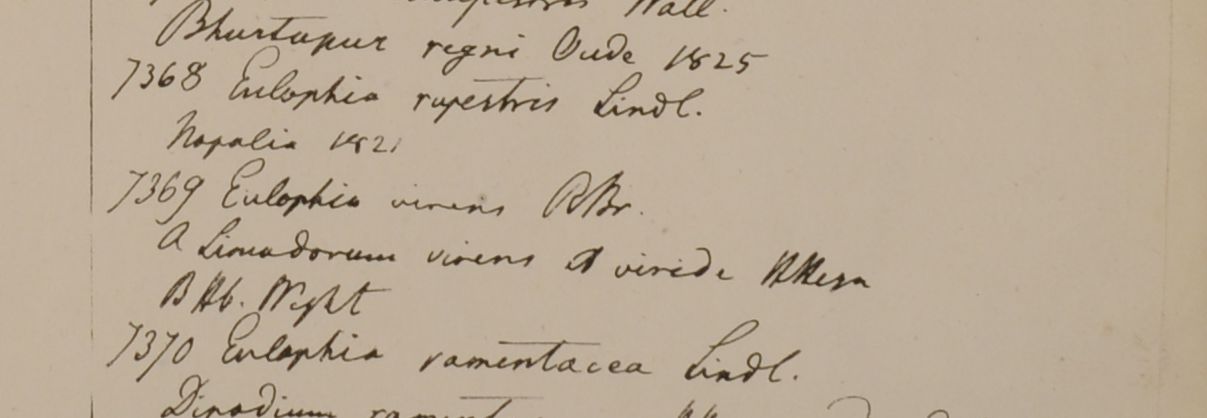 Wall.
Bhurtupur regni Oude 1825
7368 Eulophia rupestris Lindl.
Napalia 1821
7369 Eulophia virens RBr.
A Limodorum virens et viride
B Hb. Wight
7370 Eulophia ramentacea Lindl.
Dipodium